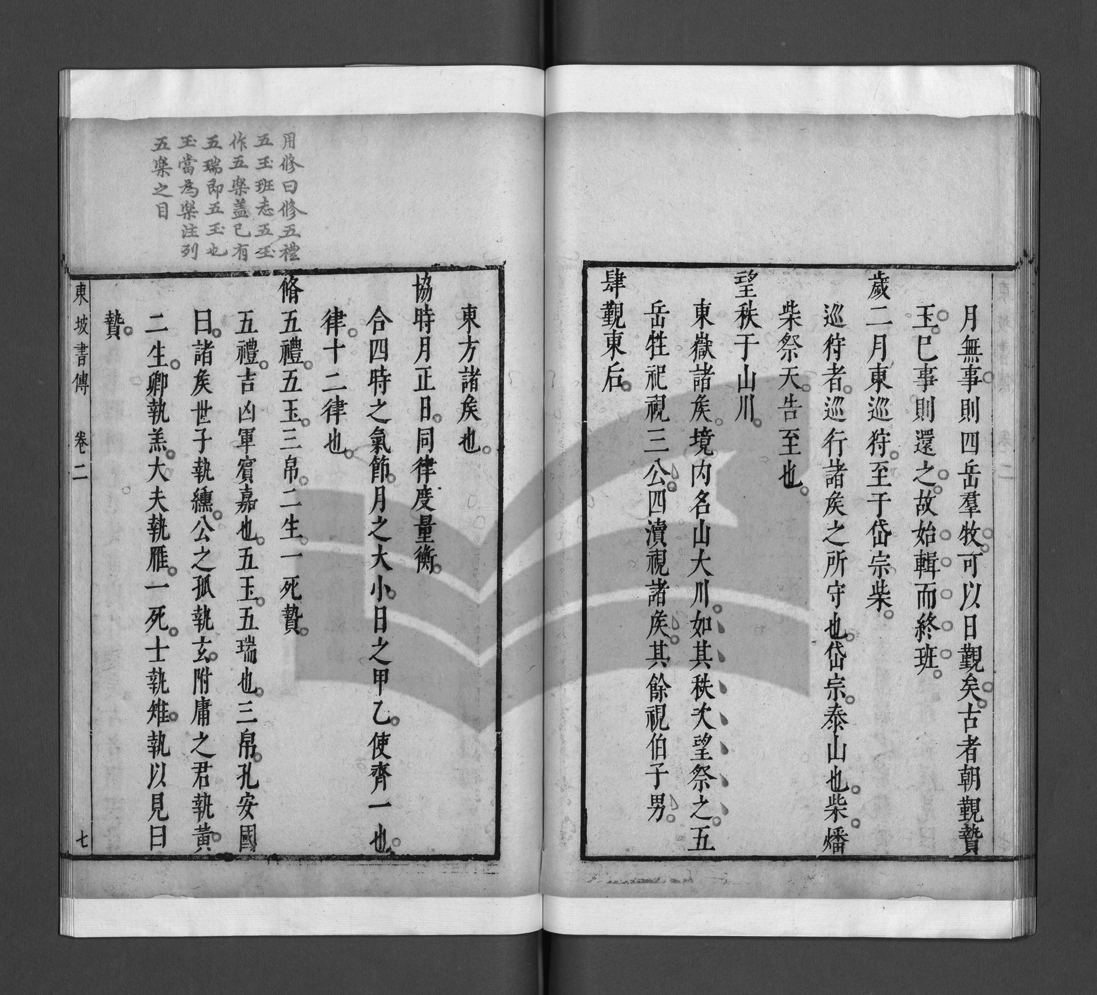 月無事則四岳羣牧可以日覲矣古者朝覲贄
玉巳事則還之故始輯而終班
歲二月東巡狩至于岱宗柴
巡狩者巡行諸矦之所守也岱宗泰山也柴燔
柴祭天告至也
望秩于山川
東嶽諸矦境内名山大川如其秩次望祭之五
岳牲祀視三公四瀆視諸矦其餘視伯子男
肆覲東后
東方諸矦也
協時月正日同律度量衡
合四時之氣節月之大小日之甲乙使齊一也
律十二律也
脩五禮五玉三帛二生一死贄
五禮吉凶軍賓嘉也五玉五瑞也三帛孔安國
曰諸矦世子執纁公之孤執玄附庸之君執黄
二生卿執羔大夫執雁一死士執雉執以見曰
贄
東坡書傳 卷二 七
用修曰修五禮
五玉班志五玉
作五樂蓋已有
五瑞即五玉也
玉當為樂注列
五樂之目